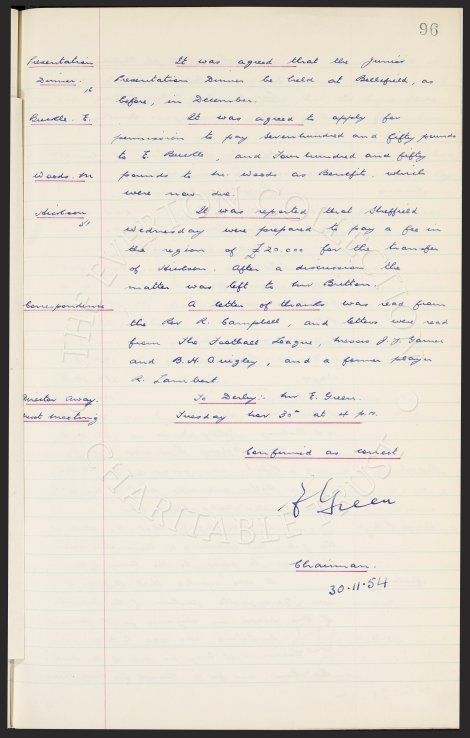 96
Presentation It was agreed that the junior
Dinner. Presentation Dinner be held at Bellefield, as
16 before, in December.
Buckle. E. It was agreed to apply for
permission to pay Sevenhundred and fifty pounds
to E. Buckle, and Fourhundred and fifty
Woods. M pounds to Mr. Woods as Benefit, which
were now due.
Hickson It was reported that Sheffield
51 Wednesday were prepared to pay a fee in
the region of £20.000 for the transfer
of Hickson. After a discussion the
matter was left to Mr Britton.
Correspondence A letter of thanks was read from
the Rev R. Campbell, and letters were read
from The Football League, Messrs J. T. Garner
and B. H. Quigley, and a former player
R. Lambert.
Director Away. To Derby:- Mr E. Green.
Next meeting Tuesday Nov 30th at 4 p.m.
Confirmed as correct
E Green
Chairman.
30.11.54
THE EVERTON COLLECTION
CHARITABLE TRUST ©